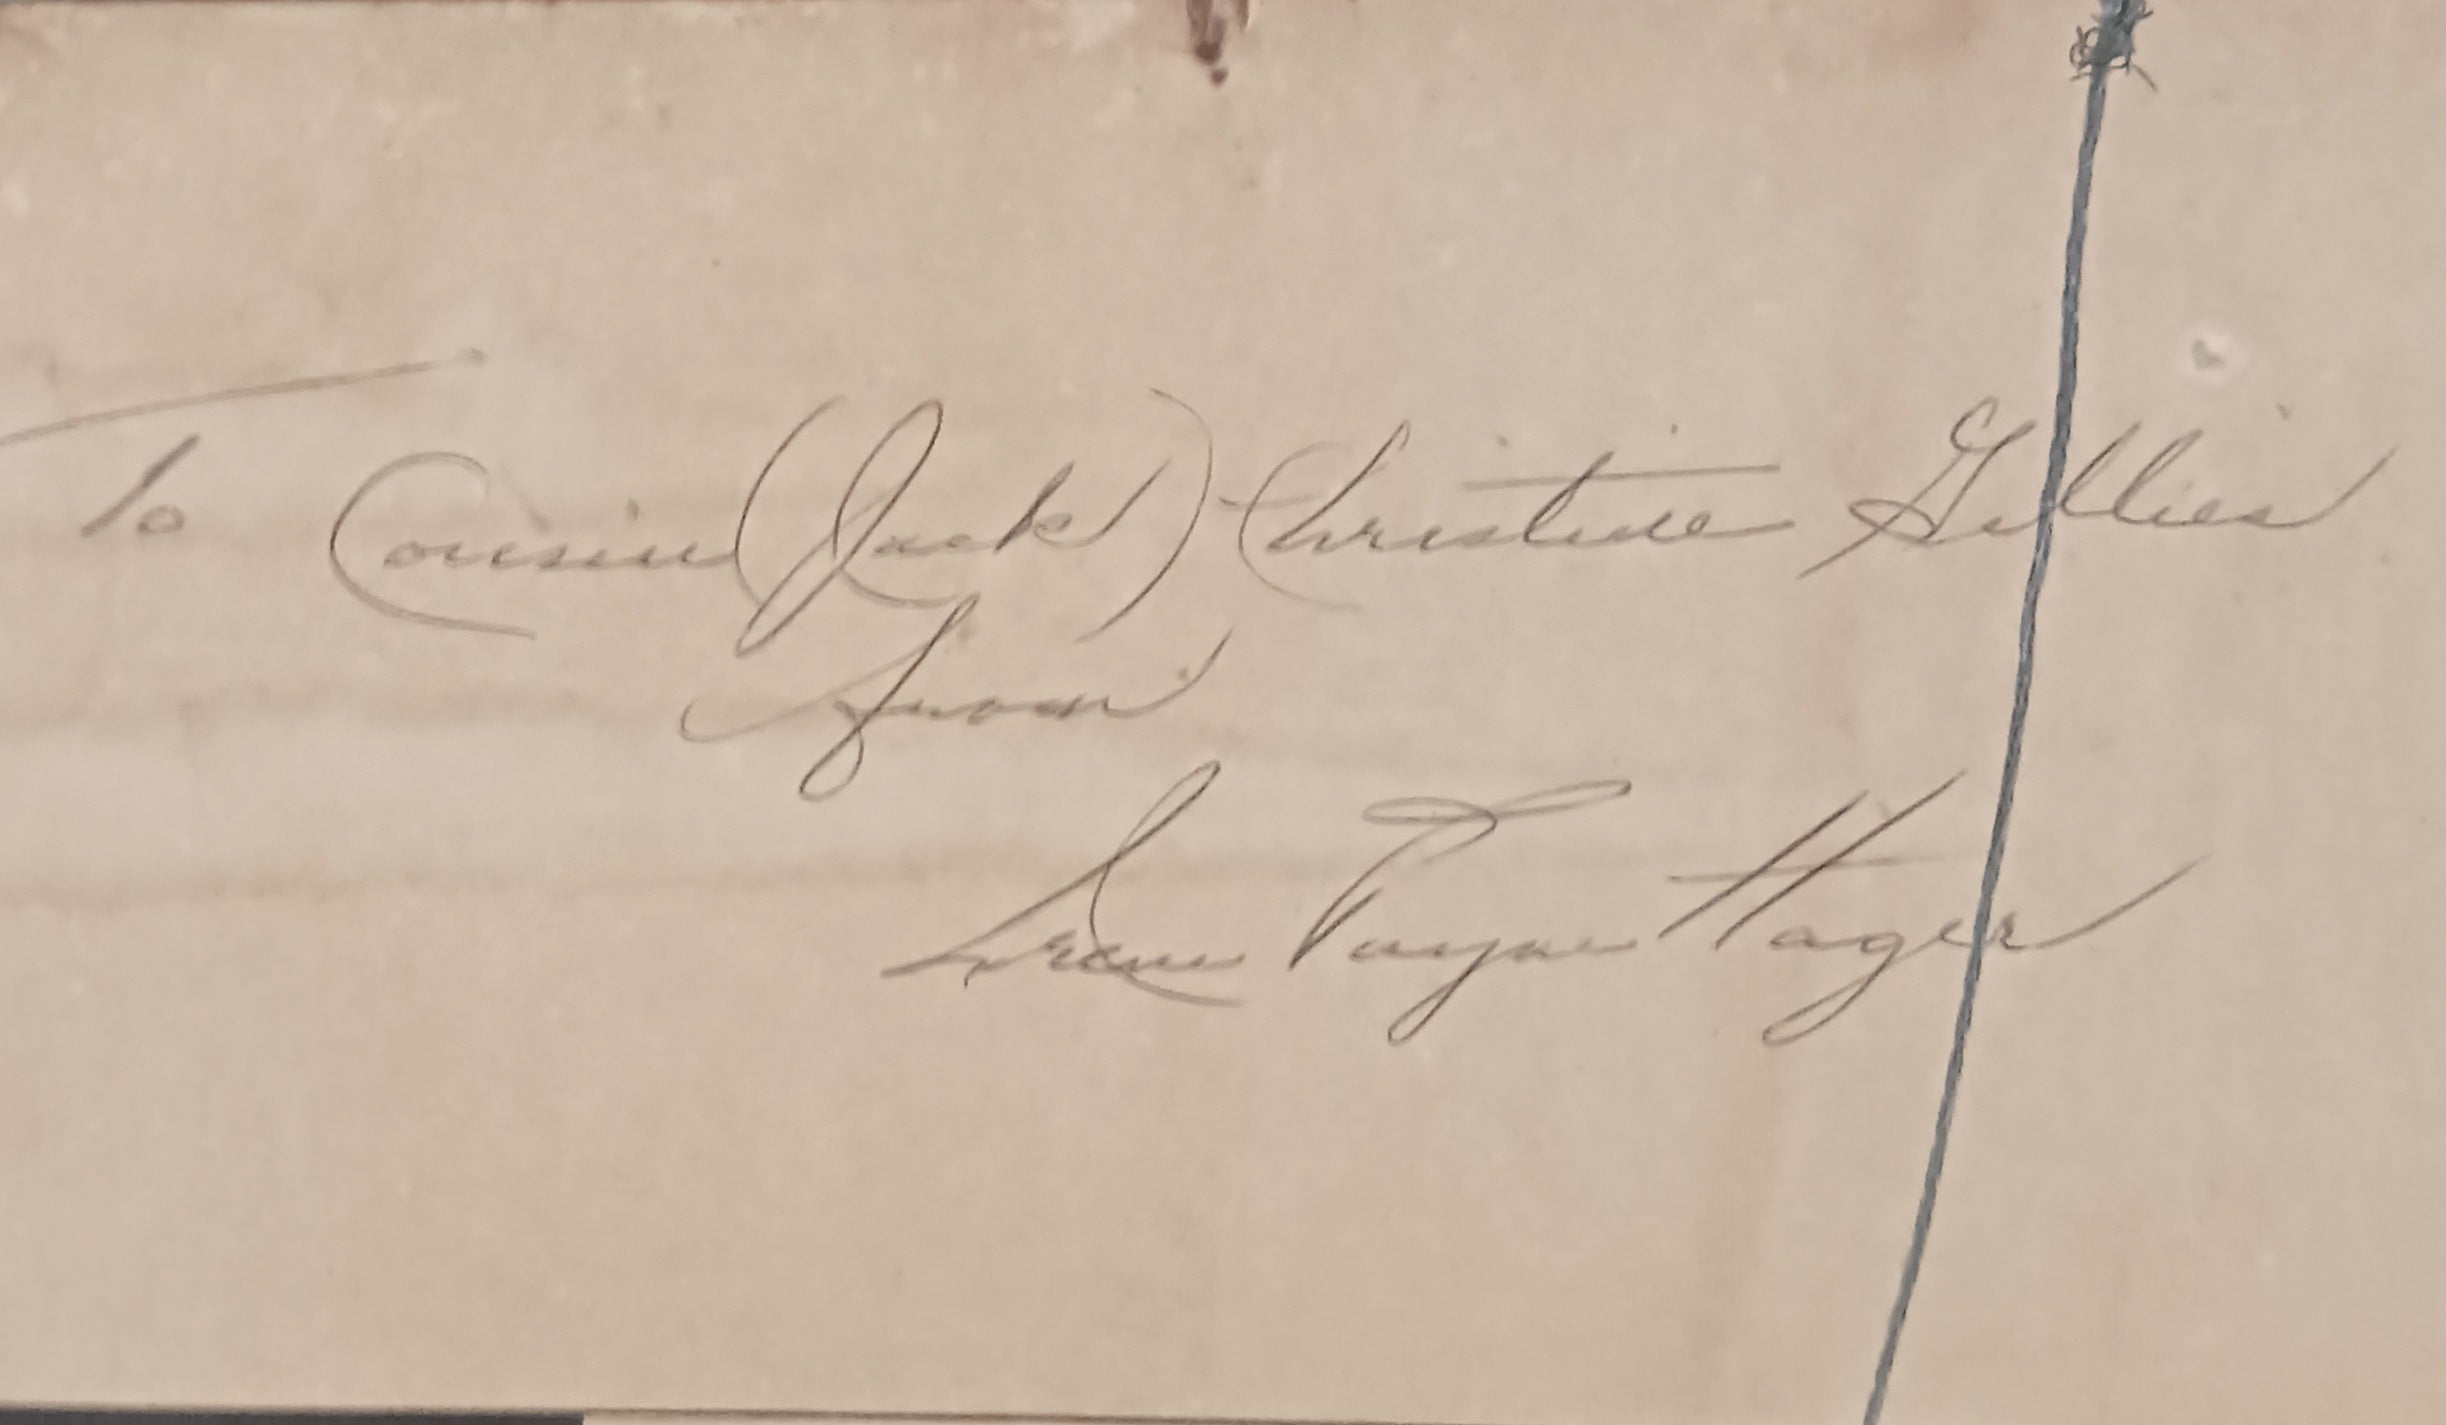 To Cousin (Jack) Christine Gillies
from
Irene Payne Hager